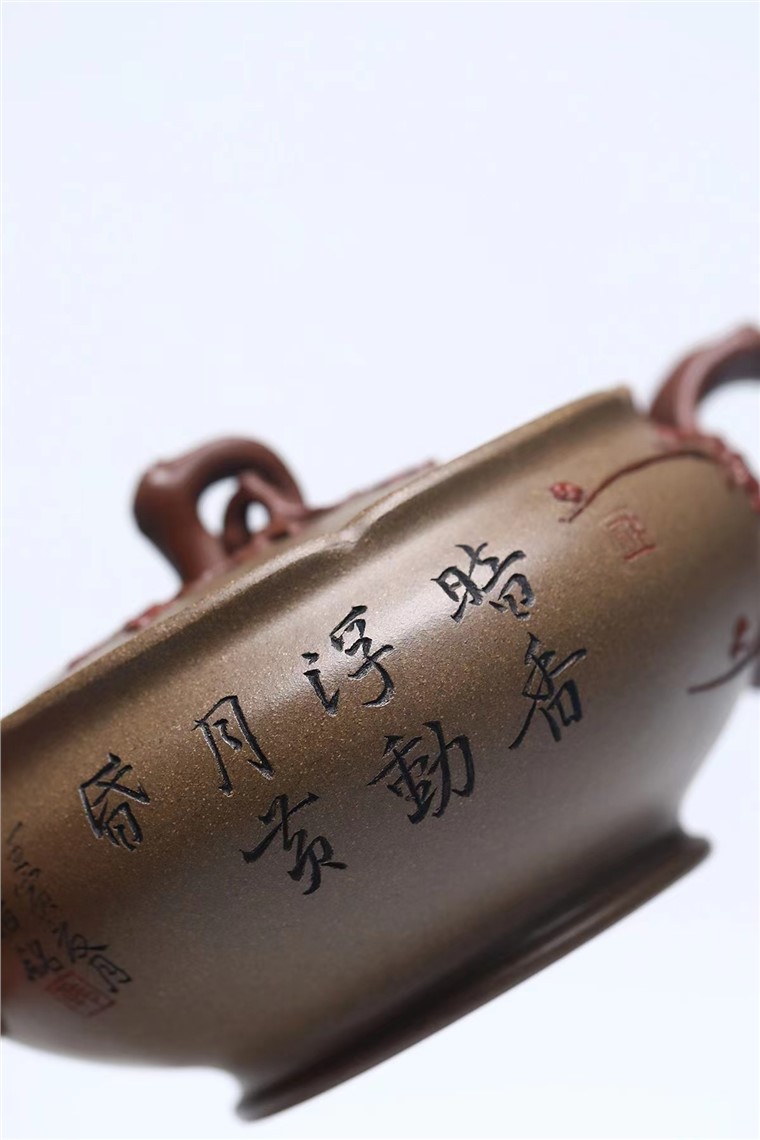 暗香
浮動
月黄
昏